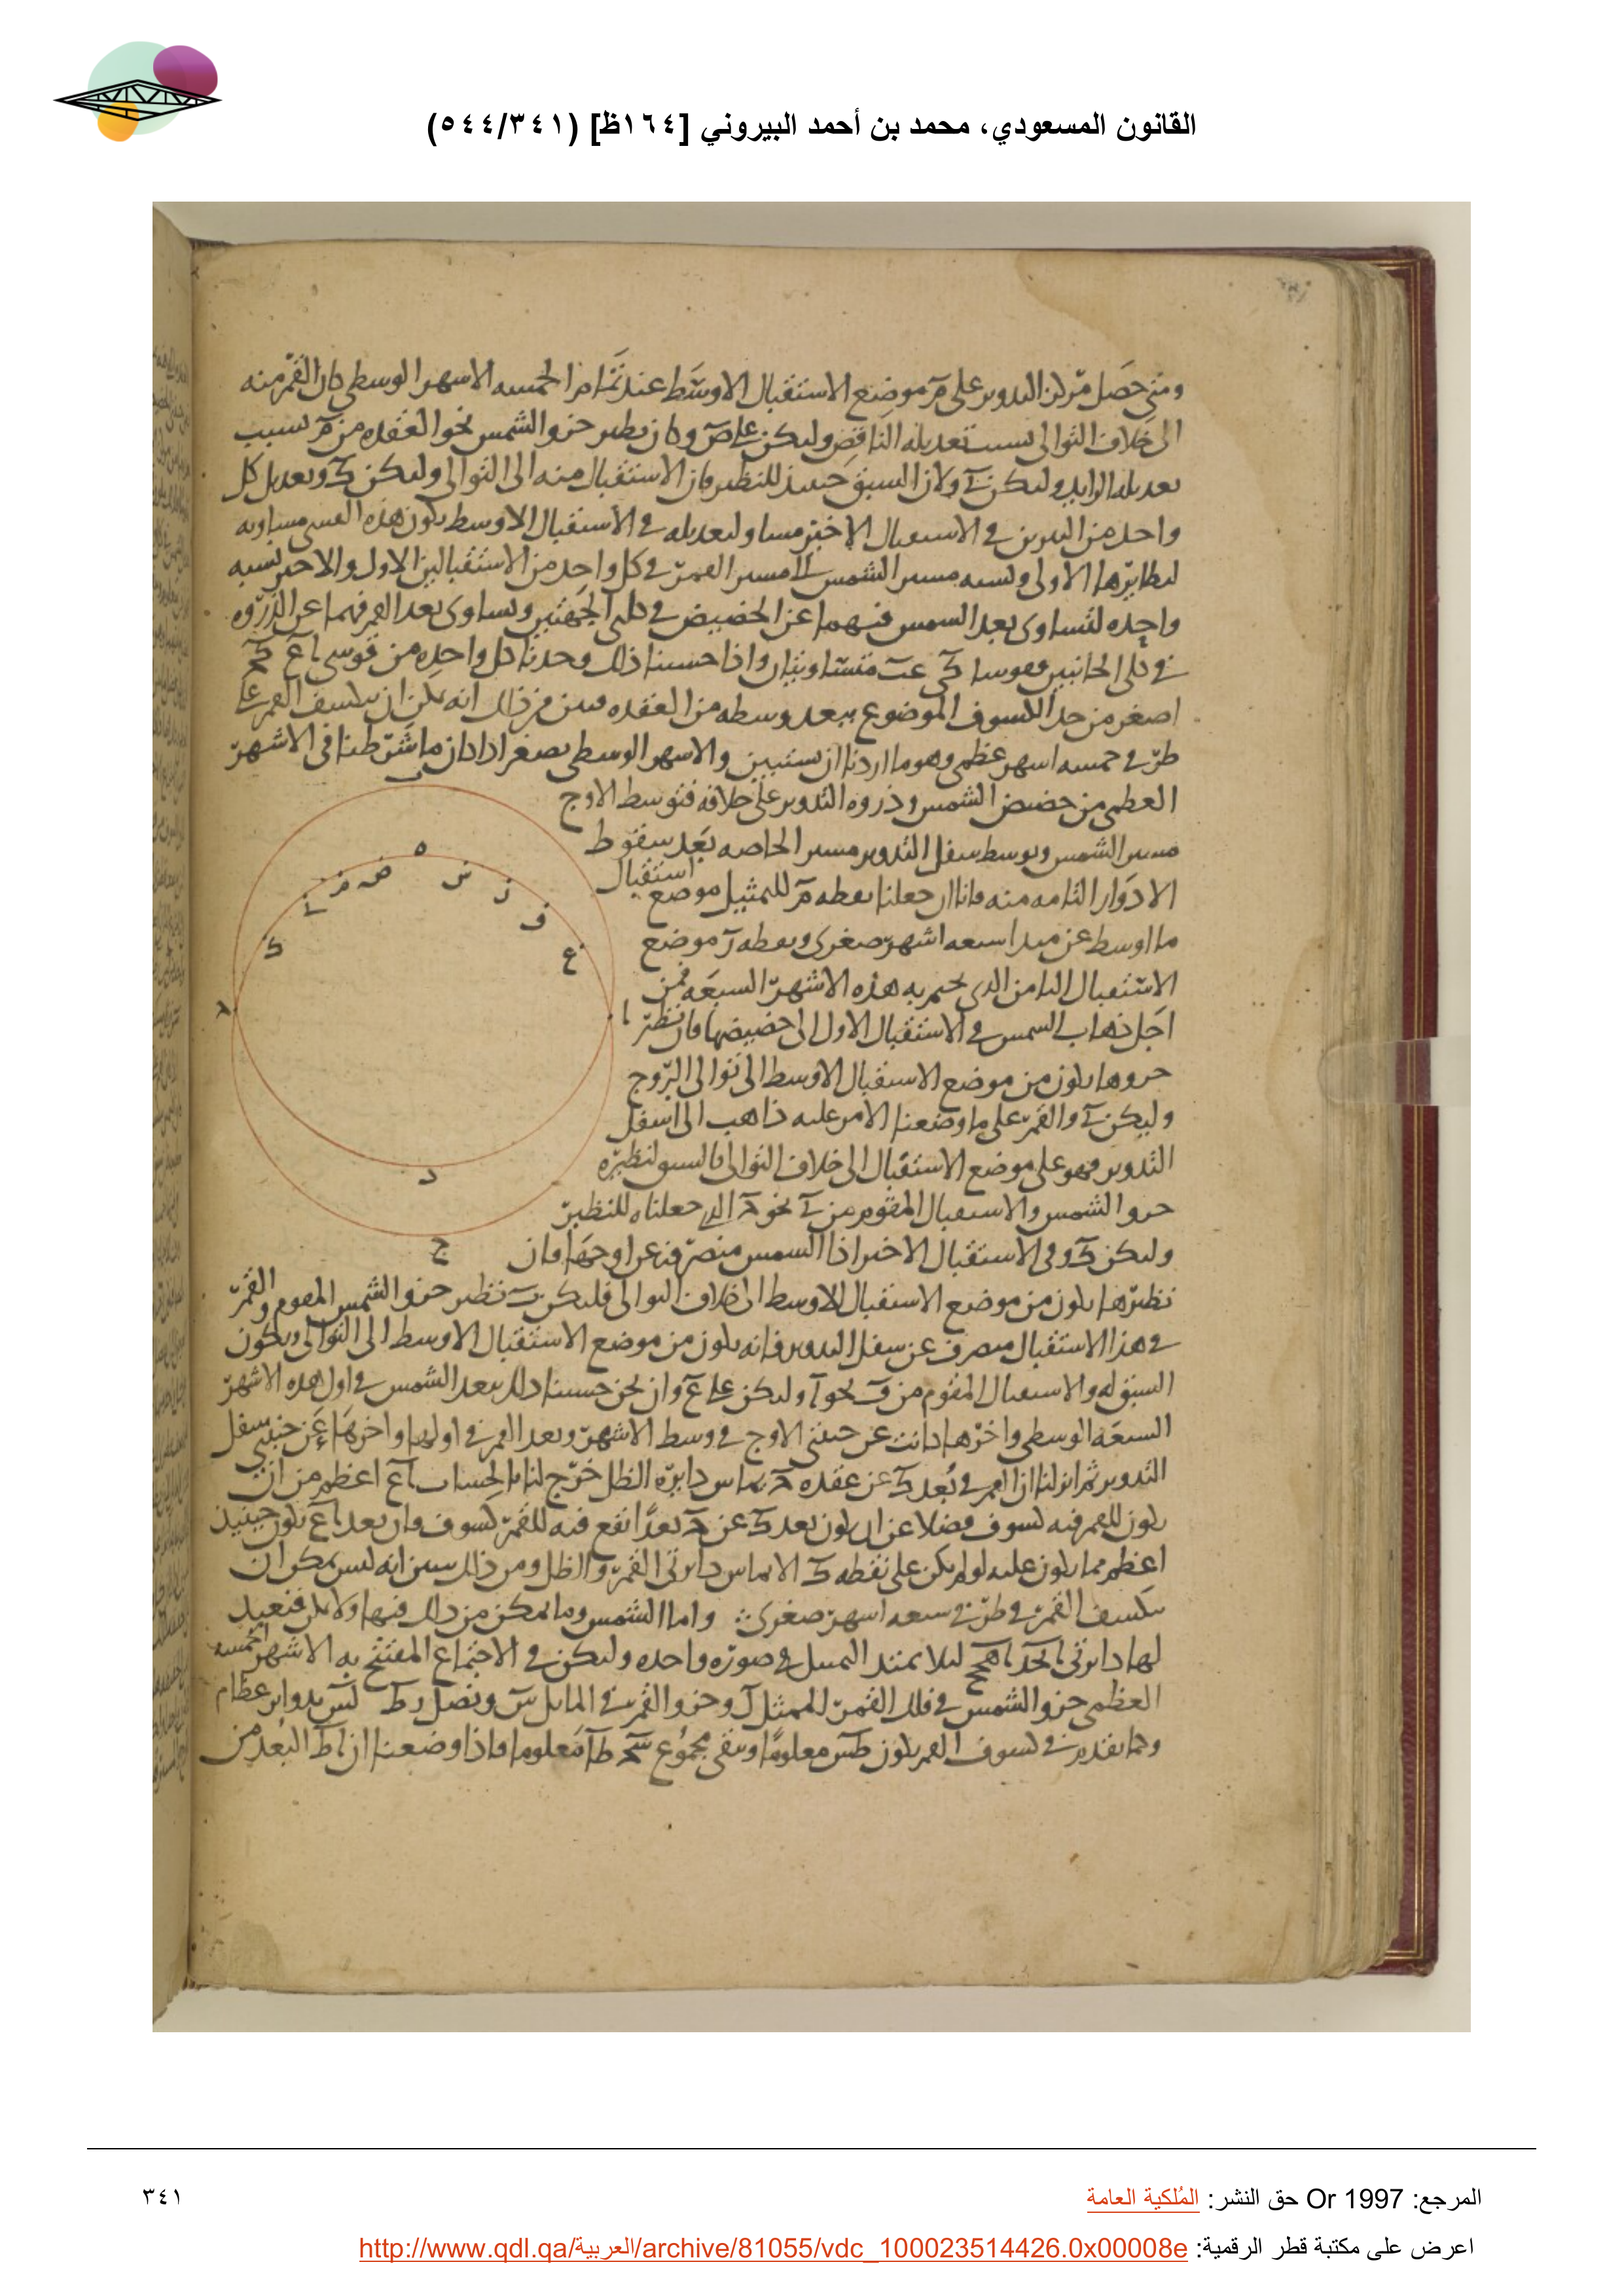 القانون المسعودي، محمد بن أحمد البيروني [١٦٤ظ] (٥٤٤/٣٤١)
ومتى حصل مركز التدوير على م موضع الاستقبال الاوسط عند تمام الخمسه الاشهر الوسطى كان القمر منه
الى خلاف التوالى بسبب تعديله الناقص وليكن على ص وكان نظير جزو الشمس نحو العقده من م بسبب
تعديله الزايد وليكن ولان السبق حينيذ للنظير فان الاستقبال منه الى التوالى وليكن ك وتعديل كل
واحد من النيرين فى الاستقبال الاخير مساو لتعديله فى الاستقبال الاوسط تكون هذه القسى مساويه
لنظايرها الاولى ونسبه مسير الشمس الى مسير القمر فى كل واحد من الاستقبالين الاول والاخير نسبه
واحده لتساوى بعد الشمس فيهما عن الحضيض فى كلى الجهتين وتساوى بعد القمر فيهما عن الذروه
فى كلى الجانبين متساويتان واذا حسبنا ذلك وجدنا كل واحده من قوسى اع
اصغر من حد الكسوف الموضوع ببعد وسطه من العقده من ذلك انه يمكن ان ينكسف القمر على
طرفى خمسه اشهر عظمى وهو ما اردنا ان نستبين والاشهر الوسطى تصغر اذا كان ما شرطنا فى الاشهر
العظمى من حضيض الشمس وذروه التدوير على خلافه فتوسط الاوج
مسير الشمس وتوسط سفل التدوير مسير الخاصه بعد سقوط
الادوار التامه منه فانا ان جعلنا نقطه م للتمثيل موضع استقبال
ما اوسط عن مبدا سبعه اشهر صغرى ونقطه ر موضع
الاستقبال الثامن الذى تختم به هذه الاشهر السبعه فمن
اجل ذهاب الشمس فى الاستقبال الاول الى حضيضها فان نظير
جزوها يكون من موضع الاستقبال الاوسط الى توالى البروج
وليكن والقمر على ما وضعنا الامر عليه ذاهب الى اسفل
التدوير فهو على موضع الاستقبال الى خلاف التوالى فالسبق لنظيره
جزو الشمس والاستقبال المقوم من نحو جعلناه للنظير
وليكن ك وفى الاستقبال الاخير اذا الشمس منصرفه عن اوجها فان
نظيرها يكون من موضع الاستقبال الاوسط الى خلاف التوالى فليكن ف نظير جزو الشمس المقوم والقمر
فى هذا الاستقبال منصرف عن سفل التدوير فانه يكون من موضع الاستقبال الاوسط الى التوالى ويكون
السبق له والاستقبال المقوم من ف نحو ا وليكن على ع وان نحن حسبنا ذلك ببعد الشمس فى اول هذه الاشهر
السبعه الوسطى واخرها كانت عن جنبتى الاوج فى وسط الاشهر وبعد القمر فى اولها واخرها عن جنبتى سفل
التدوير ثم انزلنا ان القمر فى بعد ك عن عقده ح يماس دايره الظل خرج لنا بالحساب اع اعظم من ان
يكون للقمر فيه كسوف فضلا عن ان يكون بعد ك عن ح بعدا يقع فيه للقمر كسوف فان بعد اع يكون حينيذ
اعظم مما يكون عليه لو لم يكن على نقطه ك الا تماس دايرتى القمر والظل ومن ذلك تبين انه ليس يمكن ان
ينكسف القمر فى طرفى سبعه اشهر صغرى ۞ واما الشمس وما يمكن من ذلك فيها ولا يمكن فنعيد
لها دايرتى ابجد اهج ليلا يمتد التمثيل فى صوره واحده وليكن فى الاجتماع المفتتح به الاشهر الخمسه
العظمى جزو الشمس فى فلك القمر الممثل ل وجزو القمر فى المايل س ونصل بدواير عظام
وكما تقدم فى كسوف القمر يكون طس معلوما ويبقى مجموع معلوما فاذا وضعنا ان اط البعد من
ه
ض
م
س
ز
ف
ع
ك
ا
د
ج
المرجع: Or 1997 حق النشر: المُلكية العامة
٣٤١
اعرض على مكتبة قطر الرقمية: http://www.qdl.qa/العربية/archive/81055/vdc_100023514426.0x00008e